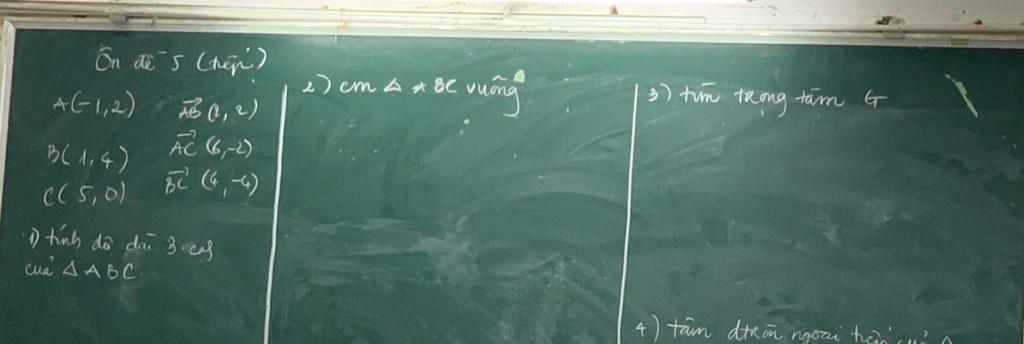 Ôn đề 5 (tiếp)
A(-1,2) AB (2,2)
B(1,4) AC (6,-2)
C(5,0) BC (4,-4)
1) tính độ dài 3 cạnh
của Δ ABC.
2) cm Δ ABC vuông
3) tìm trọng tâm G
4) tâm đtròn ngoại tiếp của Δ